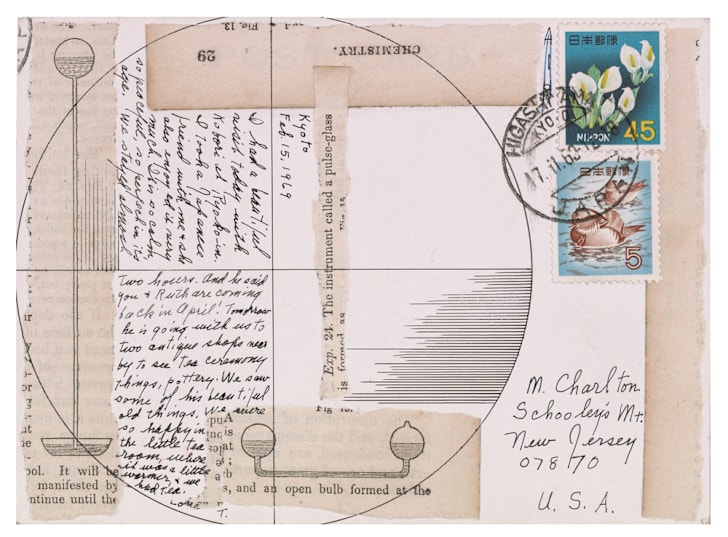 Fig. 13.
29
CHEMISTRY.
Kyoto
Feb. 15, 1969
I had a beautiful
visit today with
Kobori at Ryoko-in.
I took a Japanese
friend with me & she
also enjoyed it very
much. I'm so calm
so peaceful, so perfect in its
age. We stayed almost
Two hours. And he said
you & Ruth are coming
back in April! Tomorrow
he is going with us to
two antique shops near
by to see tea ceremony
things, pottery. We saw
some of his beautiful
old things. We were
so happy in
the little tea
room, where
it was a little
warmer, & we
had tea.
Love
T.
Exp. 24. The instrument called a pulse-glass
is formed as
Fig. 15.
ool. It will be
manifested by
ntinue until the
s, and an open bulb formed at the
日本郵便
NIPPON 45
日本郵便
5
KYOTO
17.II.69
JAPAN
M. Charlton
Schooley's Mt.
New Jersey
07870
U. S. A.